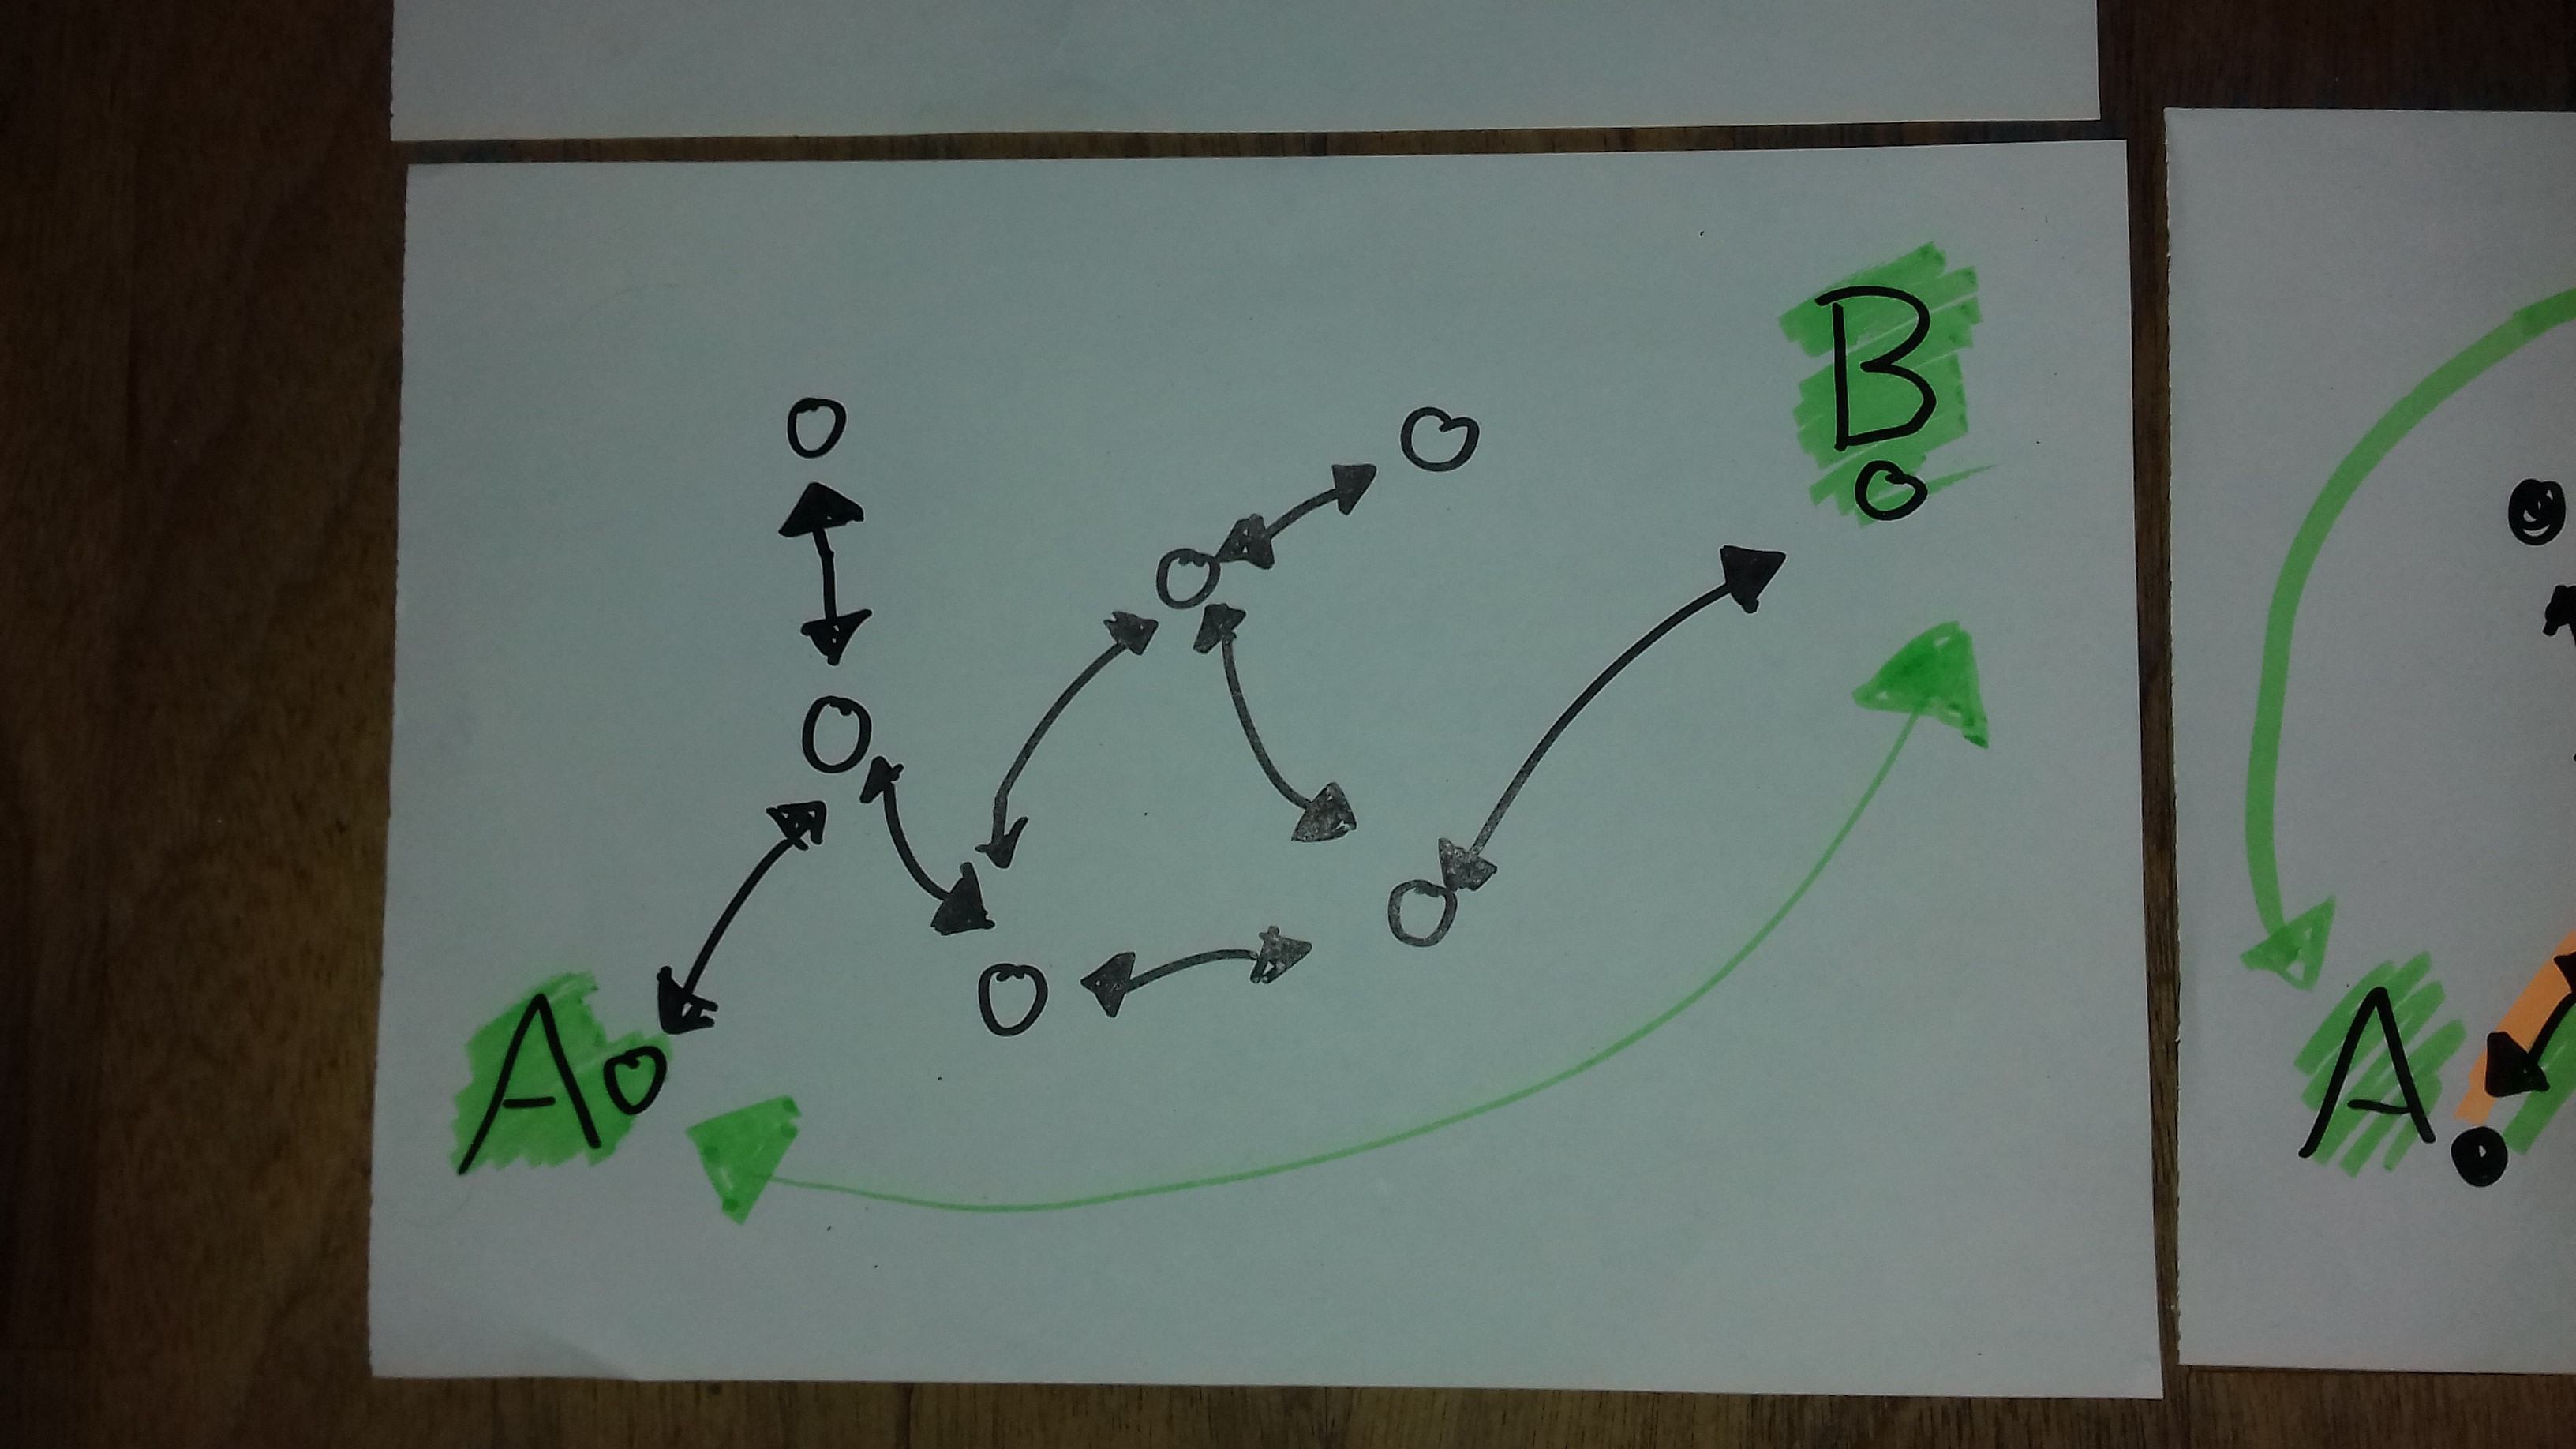 B
A
A